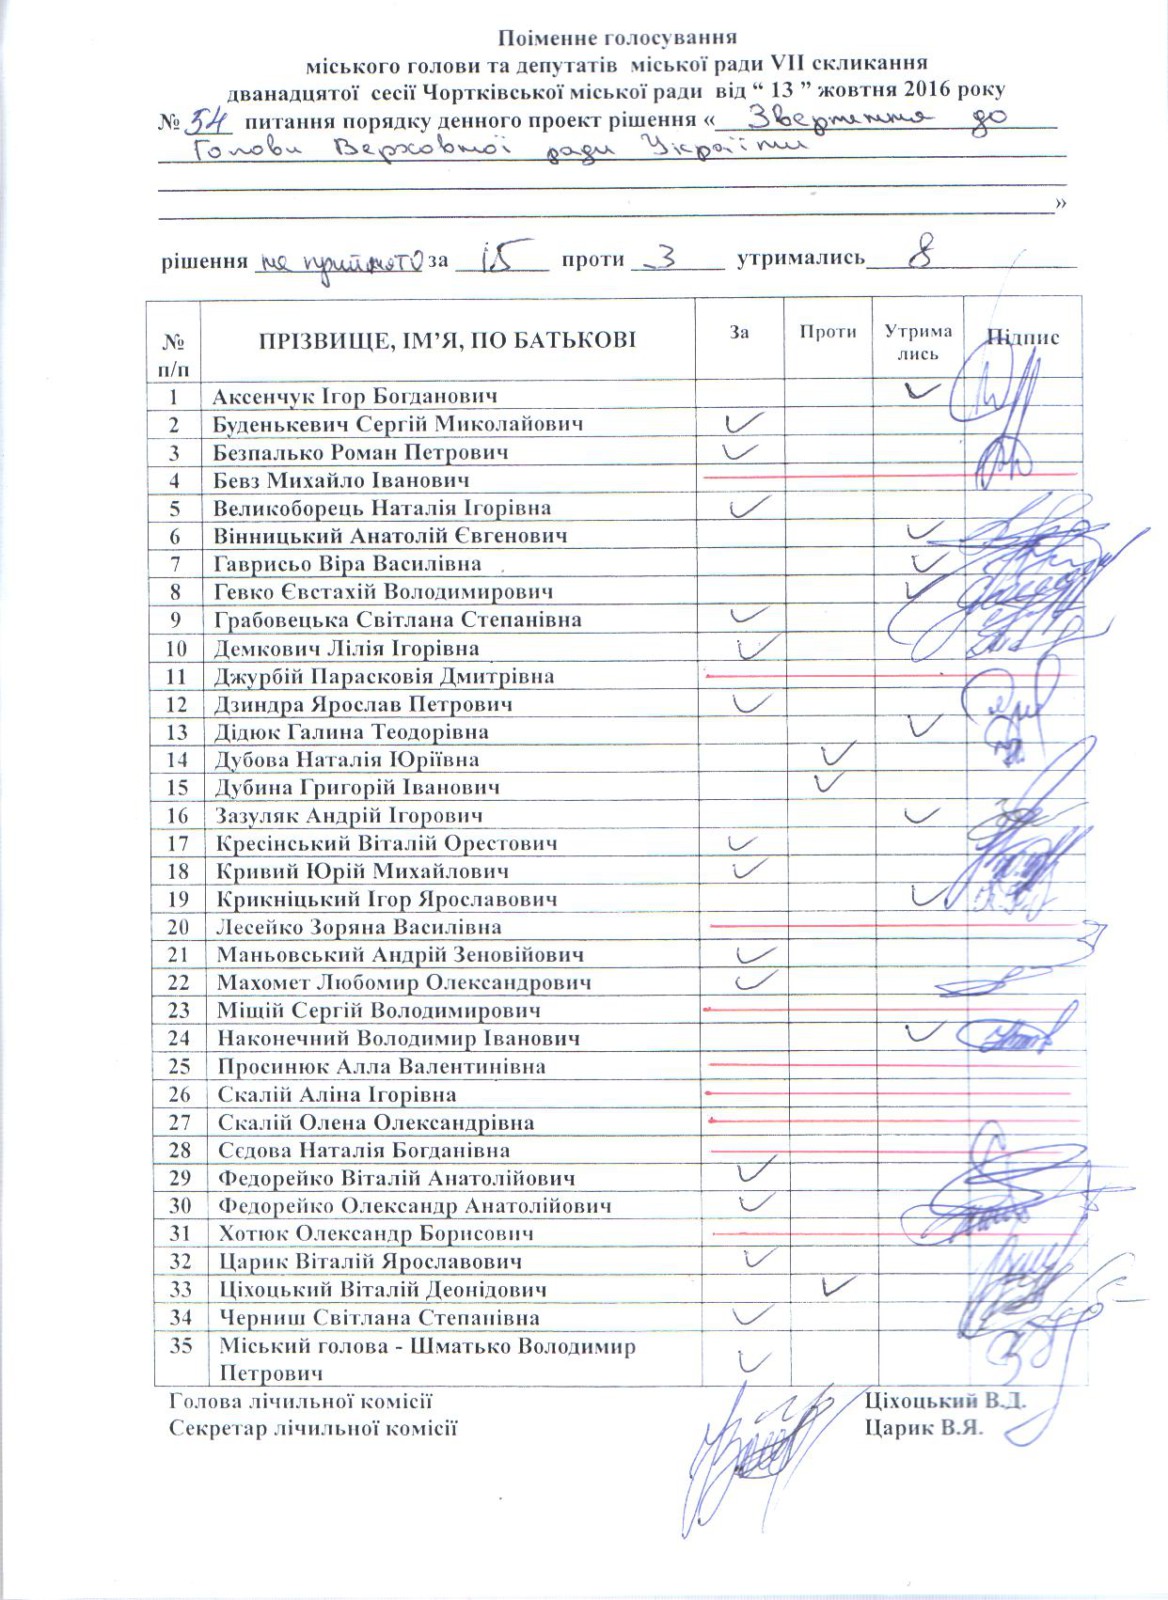 Поіменне голосування
міського голови та депутатів міської ради VII скликання
дванадцятої сесії Чортківської міської ради від “ 13 ” жовтня 2016 року
№ 54 питання порядку денного проект рішення « Звернення до
Голови Верховної ради України
»
рішення не прийнято за 15 проти 3 утримались 8
№ п/п ПРІЗВИЩЕ, ІМ’Я, ПО БАТЬКОВІ За Проти Утрима лись Підпис
1 Аксенчук Ігор Богданович
2 Буденькевич Сергій Миколайович
3 Безпалько Роман Петрович
4 Бевз Михайло Іванович
5 Великоборець Наталія Ігорівна
6 Вінницький Анатолій Євгенович
7 Гаврисьо Віра Василівна
8 Гевко Євстахій Володимирович
9 Грабовецька Світлана Степанівна
10 Демкович Лілія Ігорівна
11 Джурбій Парасковія Дмитрівна
12 Дзиндра Ярослав Петрович
13 Дідюк Галина Теодорівна
14 Дубова Наталія Юріївна
15 Дубина Григорій Іванович
16 Зазуляк Андрій Ігорович
17 Кресінський Віталій Орестович
18 Кривий Юрій Михайлович
19 Крикніцький Ігор Ярославович
20 Лесейко Зоряна Василівна
21 Маньовський Андрій Зеновійович
22 Махомет Любомир Олександрович
23 Міщій Сергій Володимирович
24 Наконечний Володимир Іванович
25 Просинюк Алла Валентинівна
26 Скалій Аліна Ігорівна
27 Скалій Олена Олександрівна
28 Сєдова Наталія Богданівна
29 Федорейко Віталій Анатолійович
30 Федорейко Олександр Анатолійович
31 Хотюк Олександр Борисович
32 Царик Віталій Ярославович
33 Ціхоцький Віталій Деонідович
34 Черниш Світлана Степанівна
35 Міський голова - Шматько Володимир
Петрович
Голова лічильної комісії Ціхоцький В.Д.
Секретар лічильної комісії Царик В.Я.